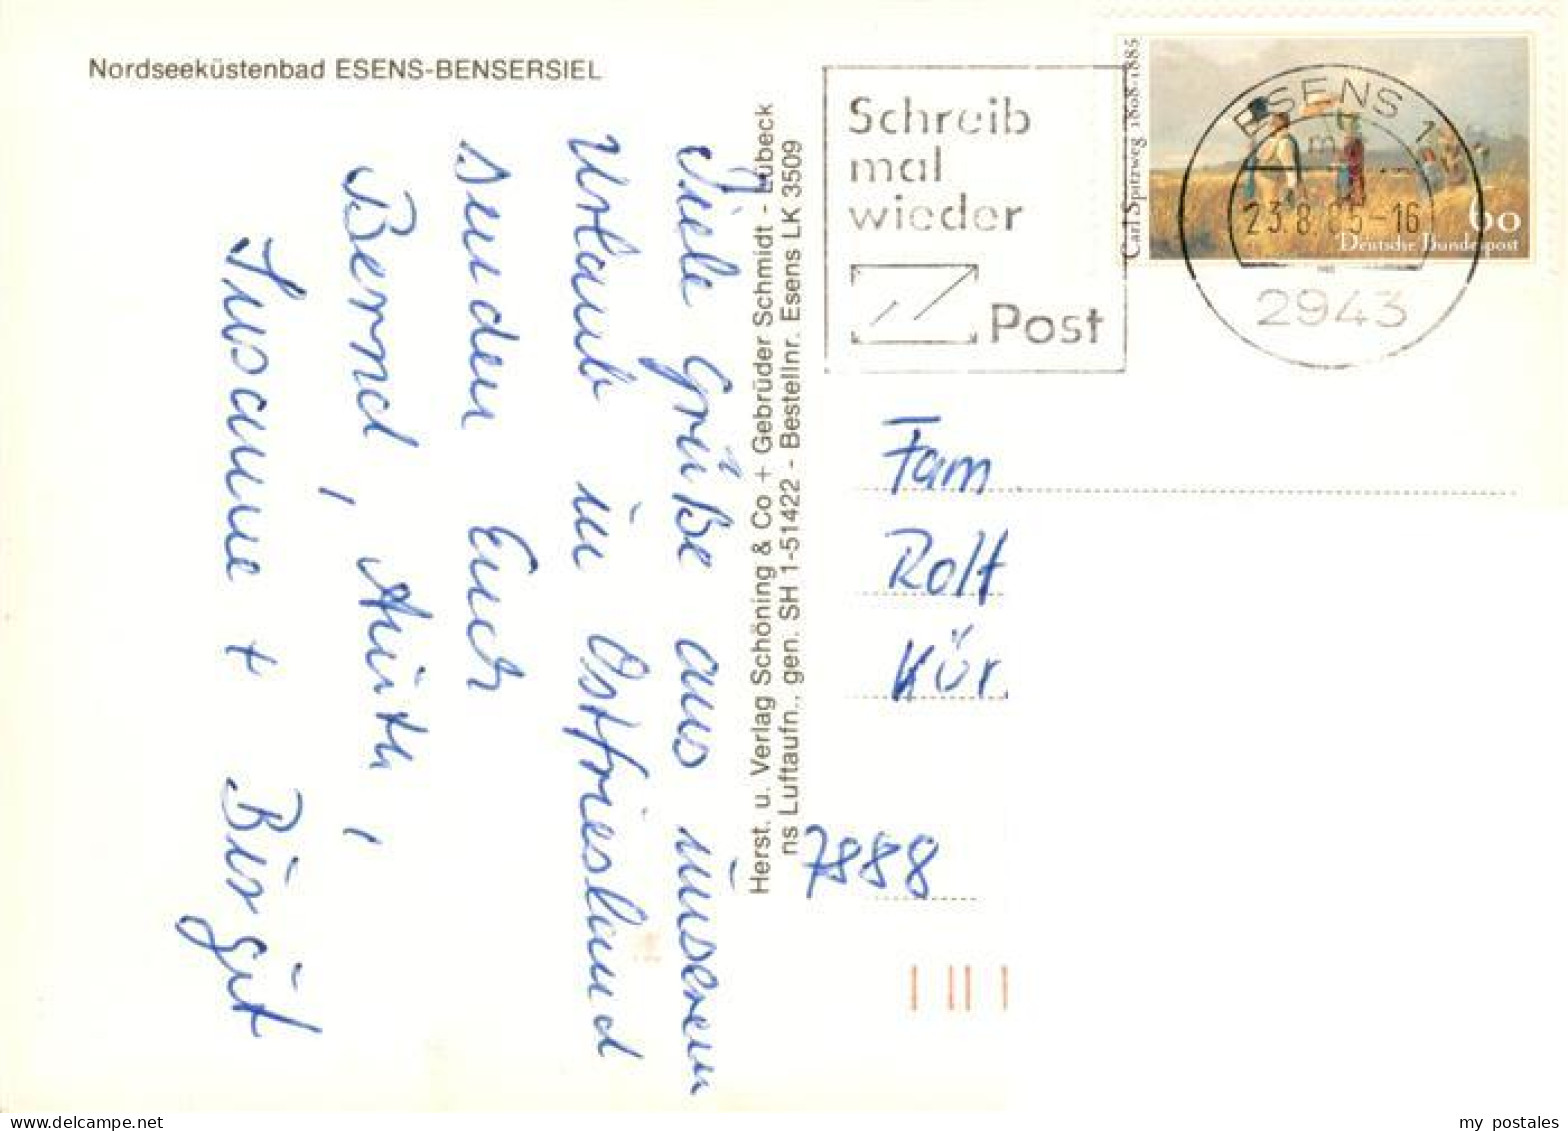 Nordseeküstenbad ESENS-BENSERSIEL
Viele Grüße aus unserem
Urlaub in Ostfriesland
senden Euch
Bernd,
Susanne + Birgit
Herst. u. Verlag Schöning & Co + Gebrüder Schmidt - Lübeck
ns Luftaufn., gen. SH 1-51422 - Bestellnr. Esens LK 3509
Schreib
mal
wieder
Post
Carl Spitzweg 1808-1885
60
Deutsche Bundespost
ESENS 1
m
23.8.85-16
2943
Fam
Rolf
Kür
7888
my postales